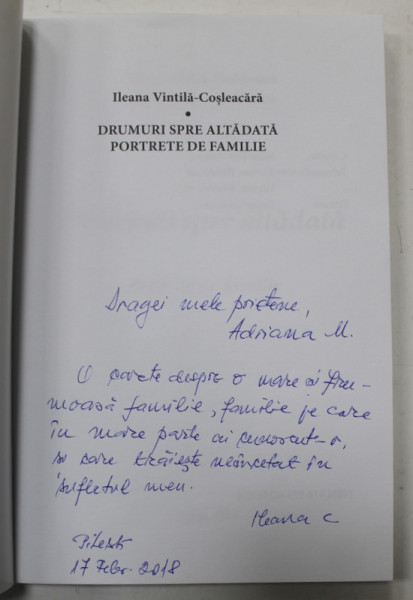 Ileana Vintilă-Coșleacără
•
DRUMURI SPRE ALTĂDATĂ
PORTRETE DE FAMILIE
Dragei mele prietene,
Adriana M.
O carte despre o mare și fru-
moasă familie, familie pe care
în mare parte ai cunoscut-o,
și care trăiește neîncetat în
sufletul meu.
Ileana C
Pitești
17 Febr. 2018